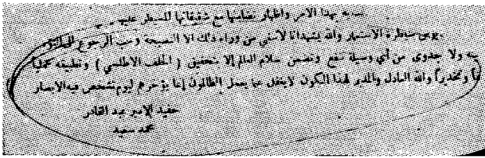 بهذا الامر واظهار تضامنها مع شقيقاتها
سيطرة الاستعمار والله يشهد اننا لا نبتغي من وراء ذلك الا النصيحة وحب الرجوع
ولا جدوى من أي وسيلة تنفع وتضمن سلام العالم إلا بتحقيق (الحلف الاطلسي) وتطبيقه عمليا
والله العادل والمدبر لهذا الكون لا يغفل عما يعمل الظالمون إنما يؤخرهم ليوم تشخص فيه الابصار
حفيد الامير عبد القادر
محمد سعيد